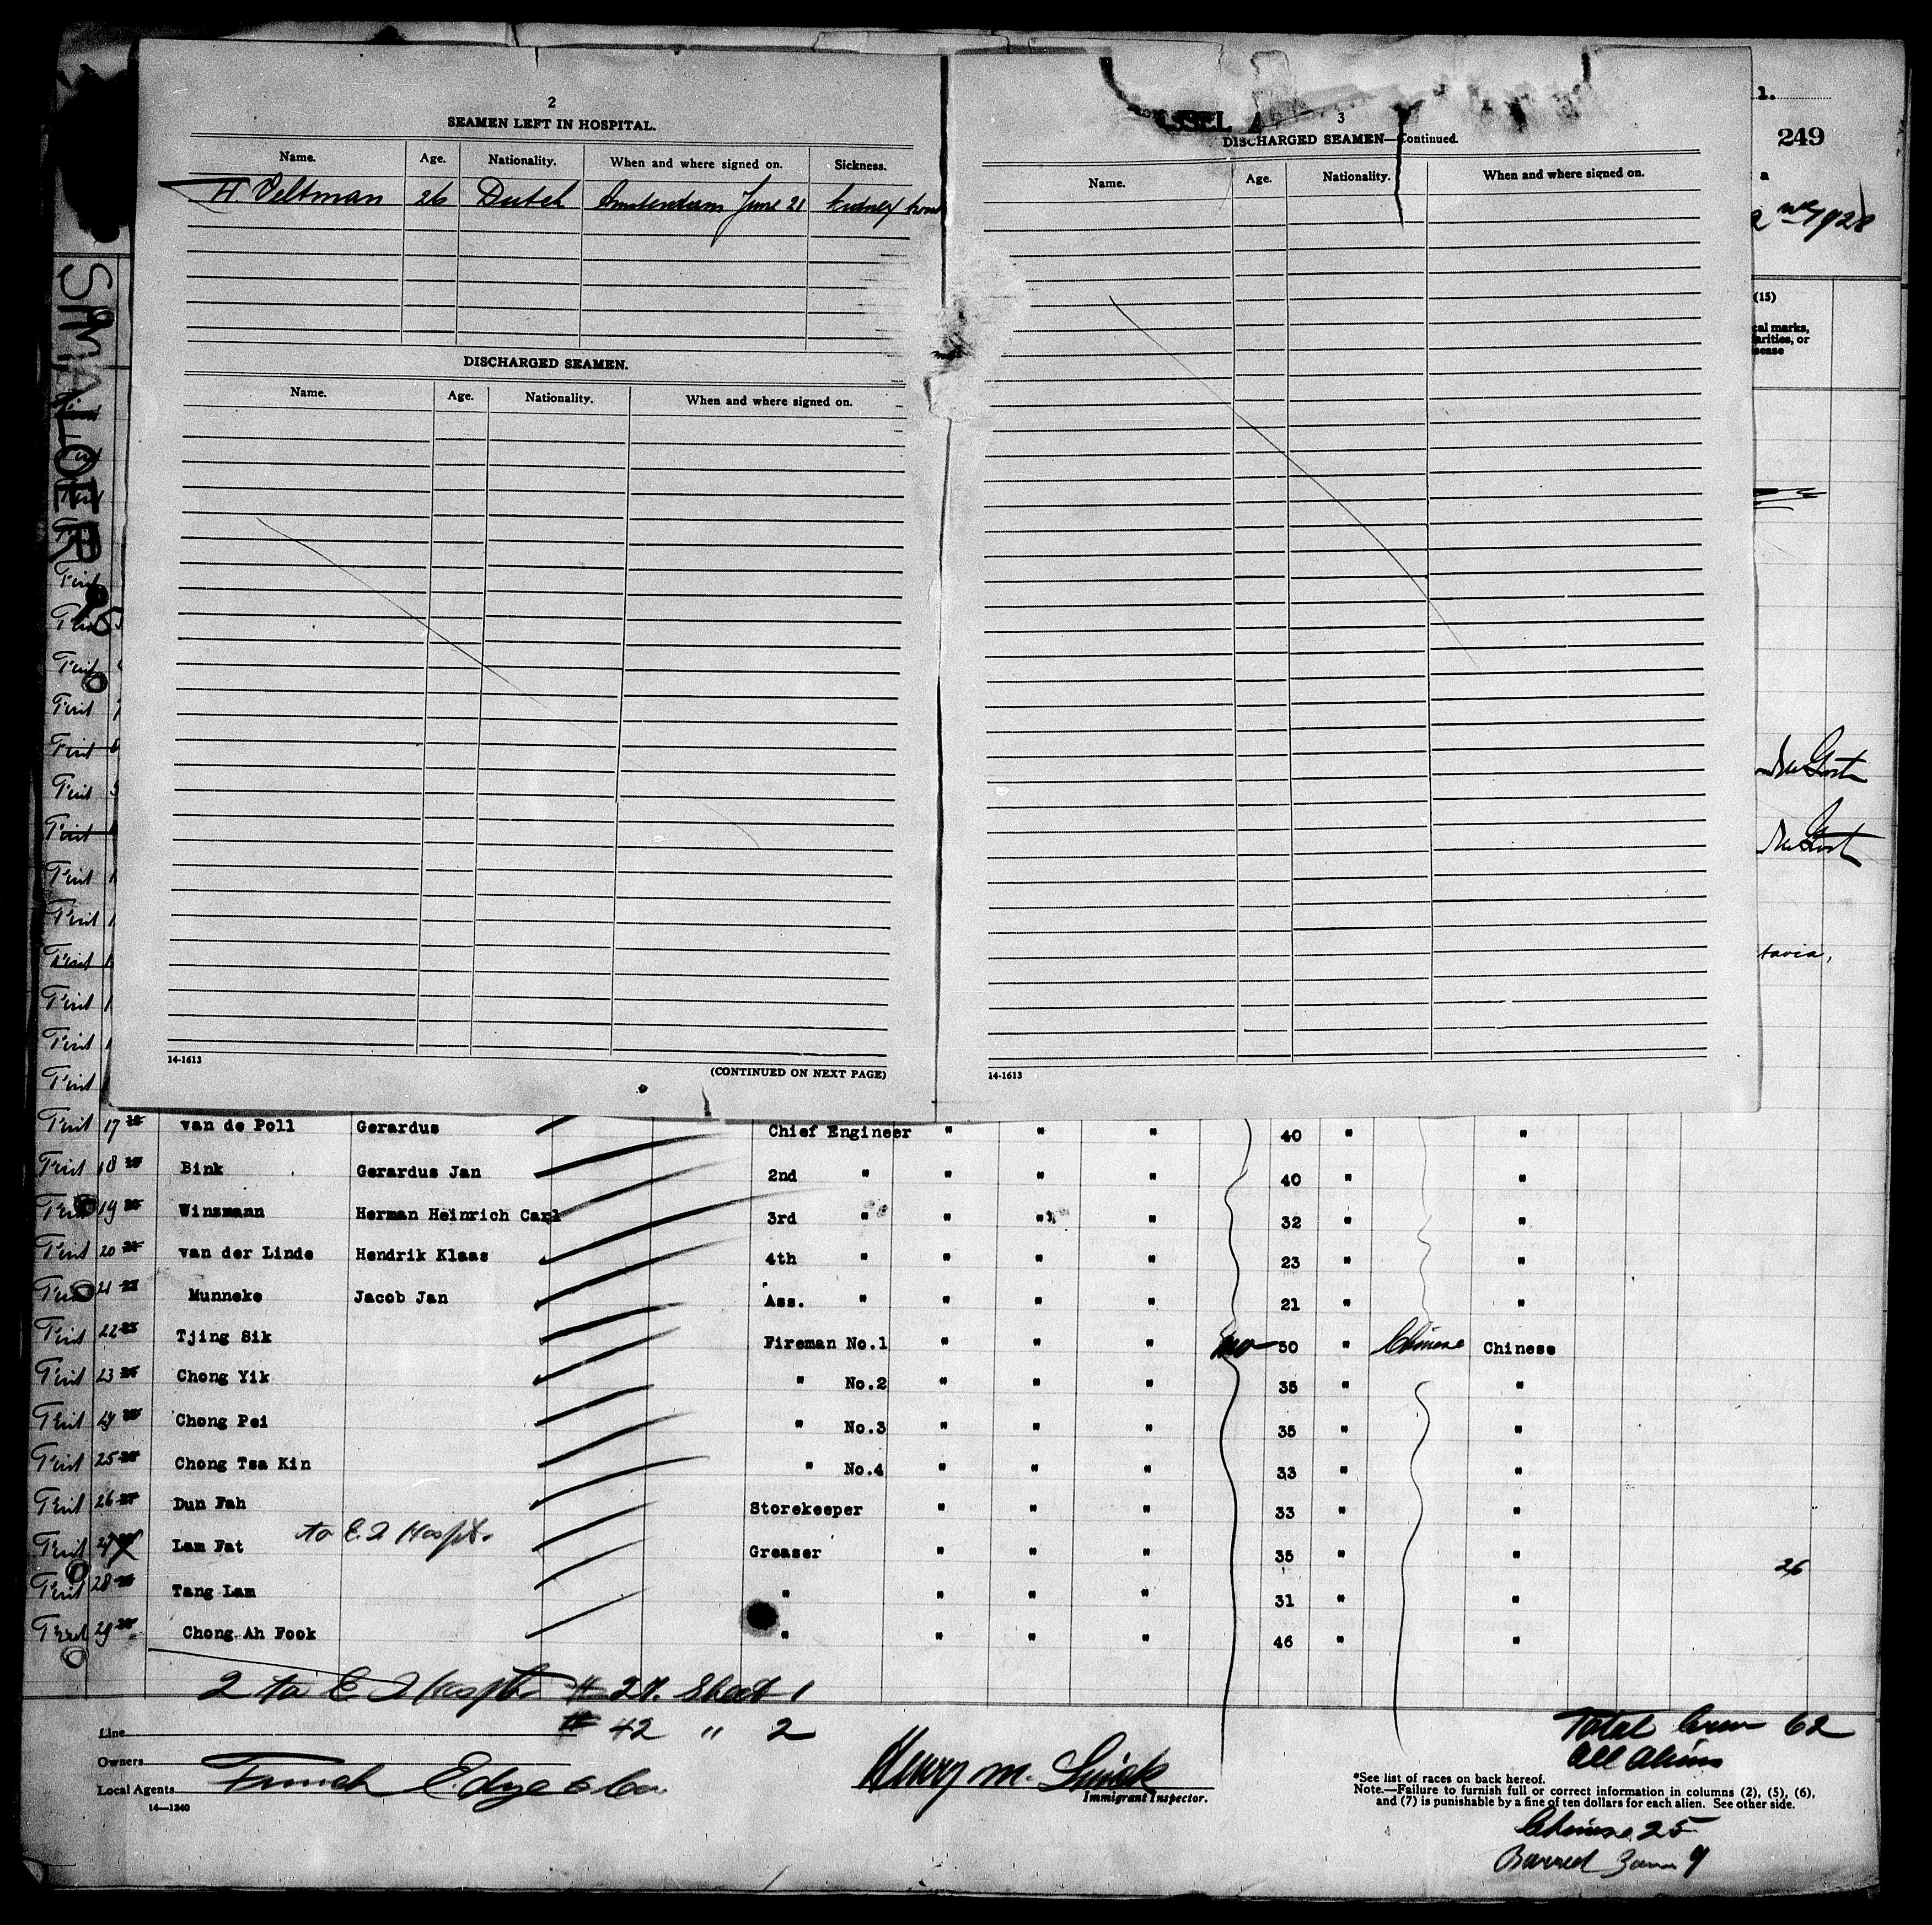 2
SEAMEN LEFT IN HOSPITAL.
Name. Age. Nationality. When and where signed on. Sickness.
H. Veltman 26 Dutch Amsterdam June 21 kidney
DISCHARGED SEAMEN.
Name. Age. Nationality. When and where signed on.
14-1613
(CONTINUED ON NEXT PAGE)
3
DISCHARGED SEAMEN—Continued.
Name. Age. Nationality. When and where signed on.
14-1613
1.
249
a
1928
(15)
cal marks,
arities, or
sease
tavia,
SMALOER
First
First
First
First
First
First
First
First
First
First
First
First
First
First 17 van de Poll Gerardus Chief Engineer " " " 40 " "
First 18 Bink Gerardus Jan 2nd " " " " 40 " "
First 19 Winzmann Herman Heinrich Carl 3rd " " " " 32 " "
First 20 van der Linde Hendrik Klaas 4th " " " " 23 " "
First 21 Munneke Jacob Jan Ass. " " " " 21 " "
First 22 Tjing Sik Fireman No.1 " " " no 50 " Chinese Chinese
First 23 Chong Yik " No.2 " " " 35 " "
First 24 Chong Pei " No.3 " " " 35 " "
First 25 Chong Tsa Kin " No.4 " " " 33 " "
First 26 Dun Fah Storekeeper " " " 33 " "
First 27 Lam Fat to E.I Hospt. Greaser " " " 35 " "
26
First 28 Tang Lam " " " " 31 " "
First 29 Chong Ah Fook " " " " 46 " "
2 to E I Hospt. # 27. Sheet 1
# 42 " 2
Line
Owners
Local Agents Funch Edye & Co.
14—1240
Henry M.
Immigrant Inspector.
Total Crew 62
All Aliens
*See list of races on back hereof.
Note.—Failure to furnish full or correct information in columns (2), (5), (6),
and (7) is punishable by a fine of ten dollars for each alien. See other side.
Chinese 25
Barred Zone 9